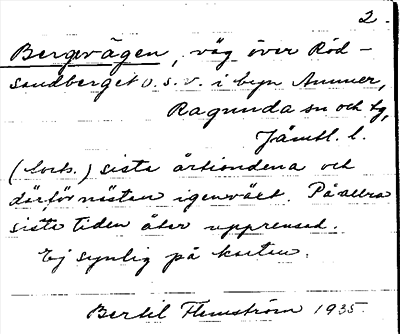 2.
Bergvägen, väg över Röd-
sandberget o. s. v. i byn Ammer,
Ragunda sn och tg,
Jämtl. l.
sista årtiondena och
därför nästan igenväxt. På allra
sista tiden åter upprensad.
Ej synlig på kartan.
Bertil Flemström 1935.